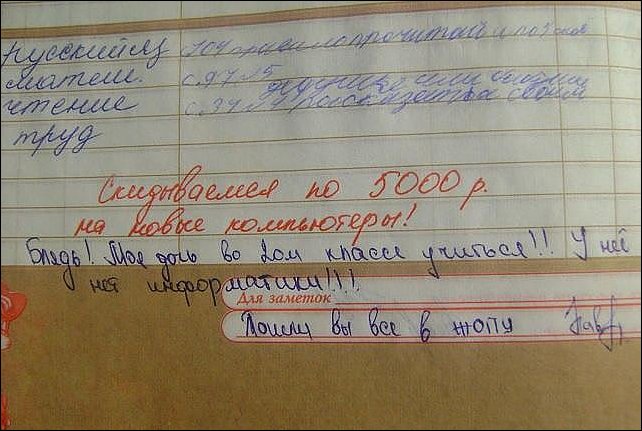 русский яз
матем. с. 97 №5
чтение с. 34
труд
Скидываемся по 5000 р.
на новые компьютеры!
Блядь! Моя дочь во 2ом классе учиться!! У неё
нет информатики!!!
Для заметок
Пошли вы все в жопу